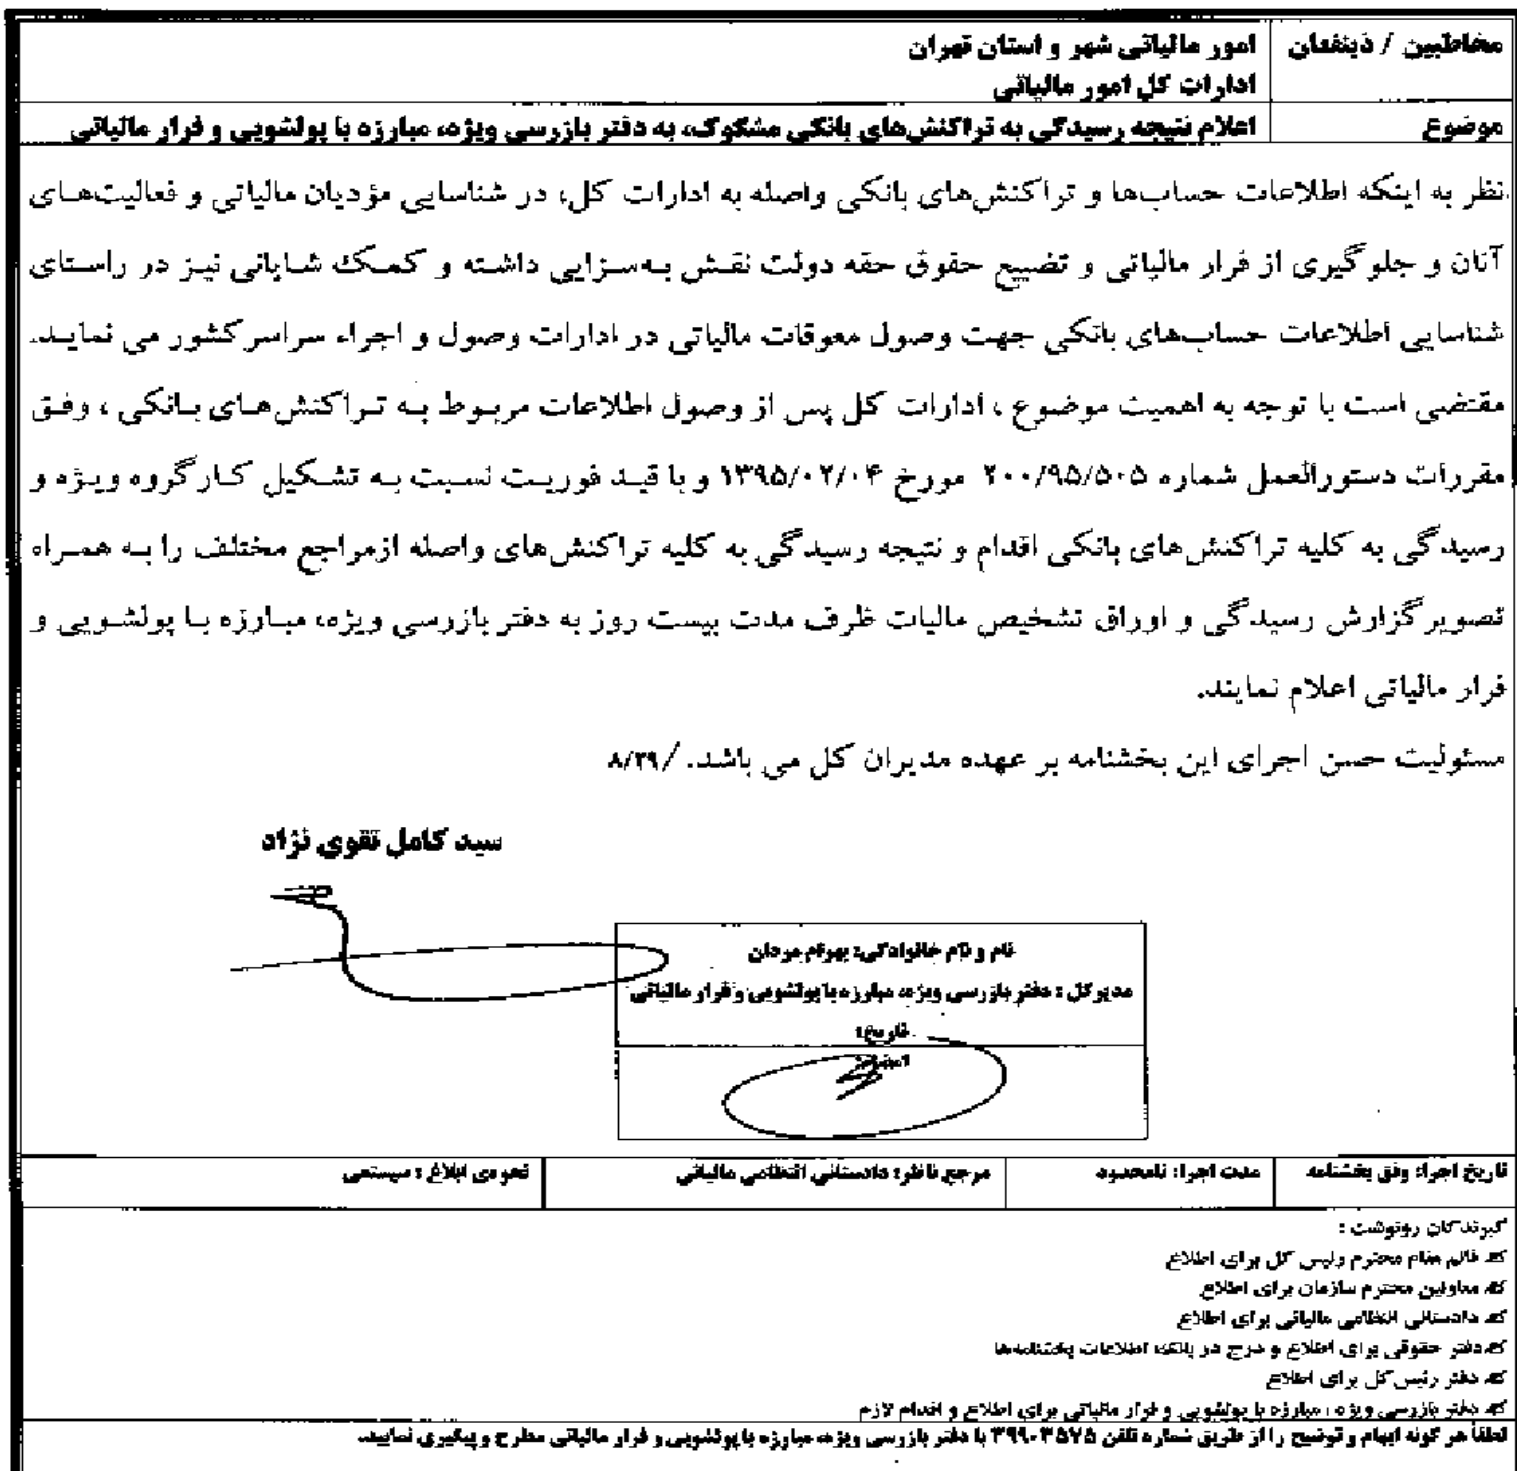 مخاطبین / ذینفعان
امور مالیاتی شهر و استان تهران
ادارات کل امور مالیاتی
موضوع
اعلام نتیجه رسیدگی به تراکنش‌های بانکی مشکوک، به دفتر بازرسی ویژه، مبارزه با پولشویی و فرار مالیاتی
نظر به اینکه اطلاعات حساب‌ها و تراکنش‌های بانکی واصله به ادارات کل، در شناسایی مؤدیان مالیاتی و فعالیت‌های
آنان و جلوگیری از فرار مالیاتی و تضییع حقوق حقه دولت نقش به‌سزایی داشته و کمک شایانی نیز در راستای
شناسایی اطلاعات حساب‌های بانکی جهت وصول معوقات مالیاتی در ادارات وصول و اجراء سراسر کشور می نماید.
مقتضی است با توجه به اهمیت موضوع ، ادارات کل پس از وصول اطلاعات مربوط به تراکنش‌های بانکی ، وفق
مقررات دستورالعمل شماره ۲۰۰/۹۵/۵۰۵ مورخ ۱۳۹۵/۰۲/۰۴ و با قید فوریت نسبت به تشکیل کارگروه ویژه و
رسیدگی به کلیه تراکنش‌های بانکی اقدام و نتیجه رسیدگی به کلیه تراکنش‌های واصله ازمراجع مختلف را به همراه
تصویر گزارش رسیدگی و اوراق تشخیص مالیات ظرف مدت بیست روز به دفتر بازرسی ویژه، مبارزه با پولشویی و
فرار مالیاتی اعلام نمایند.
مسئولیت حسن اجرای این بخشنامه بر عهده مدیران کل می باشد. /۸/۲۹
سید کامل تقوی نژاد
نام و نام خانوادگی: بهرام مردان
مدیرکل : دفتر بازرسی ویژه، مبارزه با پولشویی و فرار مالیاتی
تاریخ:
امضاء:
تاریخ اجرا: وفق بخشنامه
مدت اجرا: نامحدود
مرجع ناظر: دادستانی انتظامی مالیاتی
نحوه‌ی ابلاغ : سیستمی
گیرندگان رونوشت :
قائم مقام محترم رئیس کل برای اطلاع
معاونین محترم سازمان برای اطلاع
دادستانی انتظامی مالیاتی برای اطلاع
دفتر حقوقی برای اطلاع و درج در بانک اطلاعات بخشنامه‌ها
دفتر رئیس کل برای اطلاع
دفتر بازرسی ویژه ، مبارزه با پولشویی و فرار مالیاتی برای اطلاع و اقدام لازم
لطفاً هر گونه ابهام و توضیح را از طریق شماره تلفن ۳۹۹۰۳۵۷۵ با دفتر بازرسی ویژه، مبارزه با پولشویی و فرار مالیاتی مطرح و پیگیری نمایید.